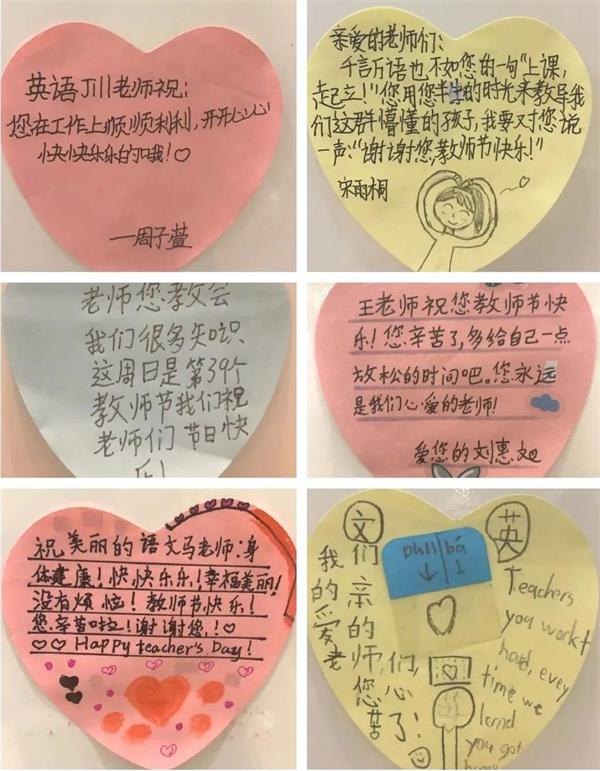 英语Jill老师祝:
您在工作上顺顺利利,开开心心
快快乐乐的哦!♡
—周子萱
亲爱的老师们:
千言万语也不如您的一句“上课,
起立!”您用您半生的时光来教导我
们这群懵懂的孩子,我要对您说
一声:“谢谢您,教师节快乐!”
宋雨桐
老师您教会
我们很多知识
这周日是第39个
教师节我们祝
老师们 节日快
乐!
王老师祝您教师节快
乐!您辛苦了,多给自己一点
放松的时间吧。您永远
是我们心爱的老师!
爱您的刘惠文
祝美丽的语文马老师:身
体健康!快快乐乐!幸福美丽!
没有烦恼!教师节快乐!
您辛苦啦!谢谢您!♡
♡♡Happy teacher's Day!
文
我们
的亲
爱的
老师们,
您心
苦了!
英
Teachers
you work
hard, evey
time we
lend
you got